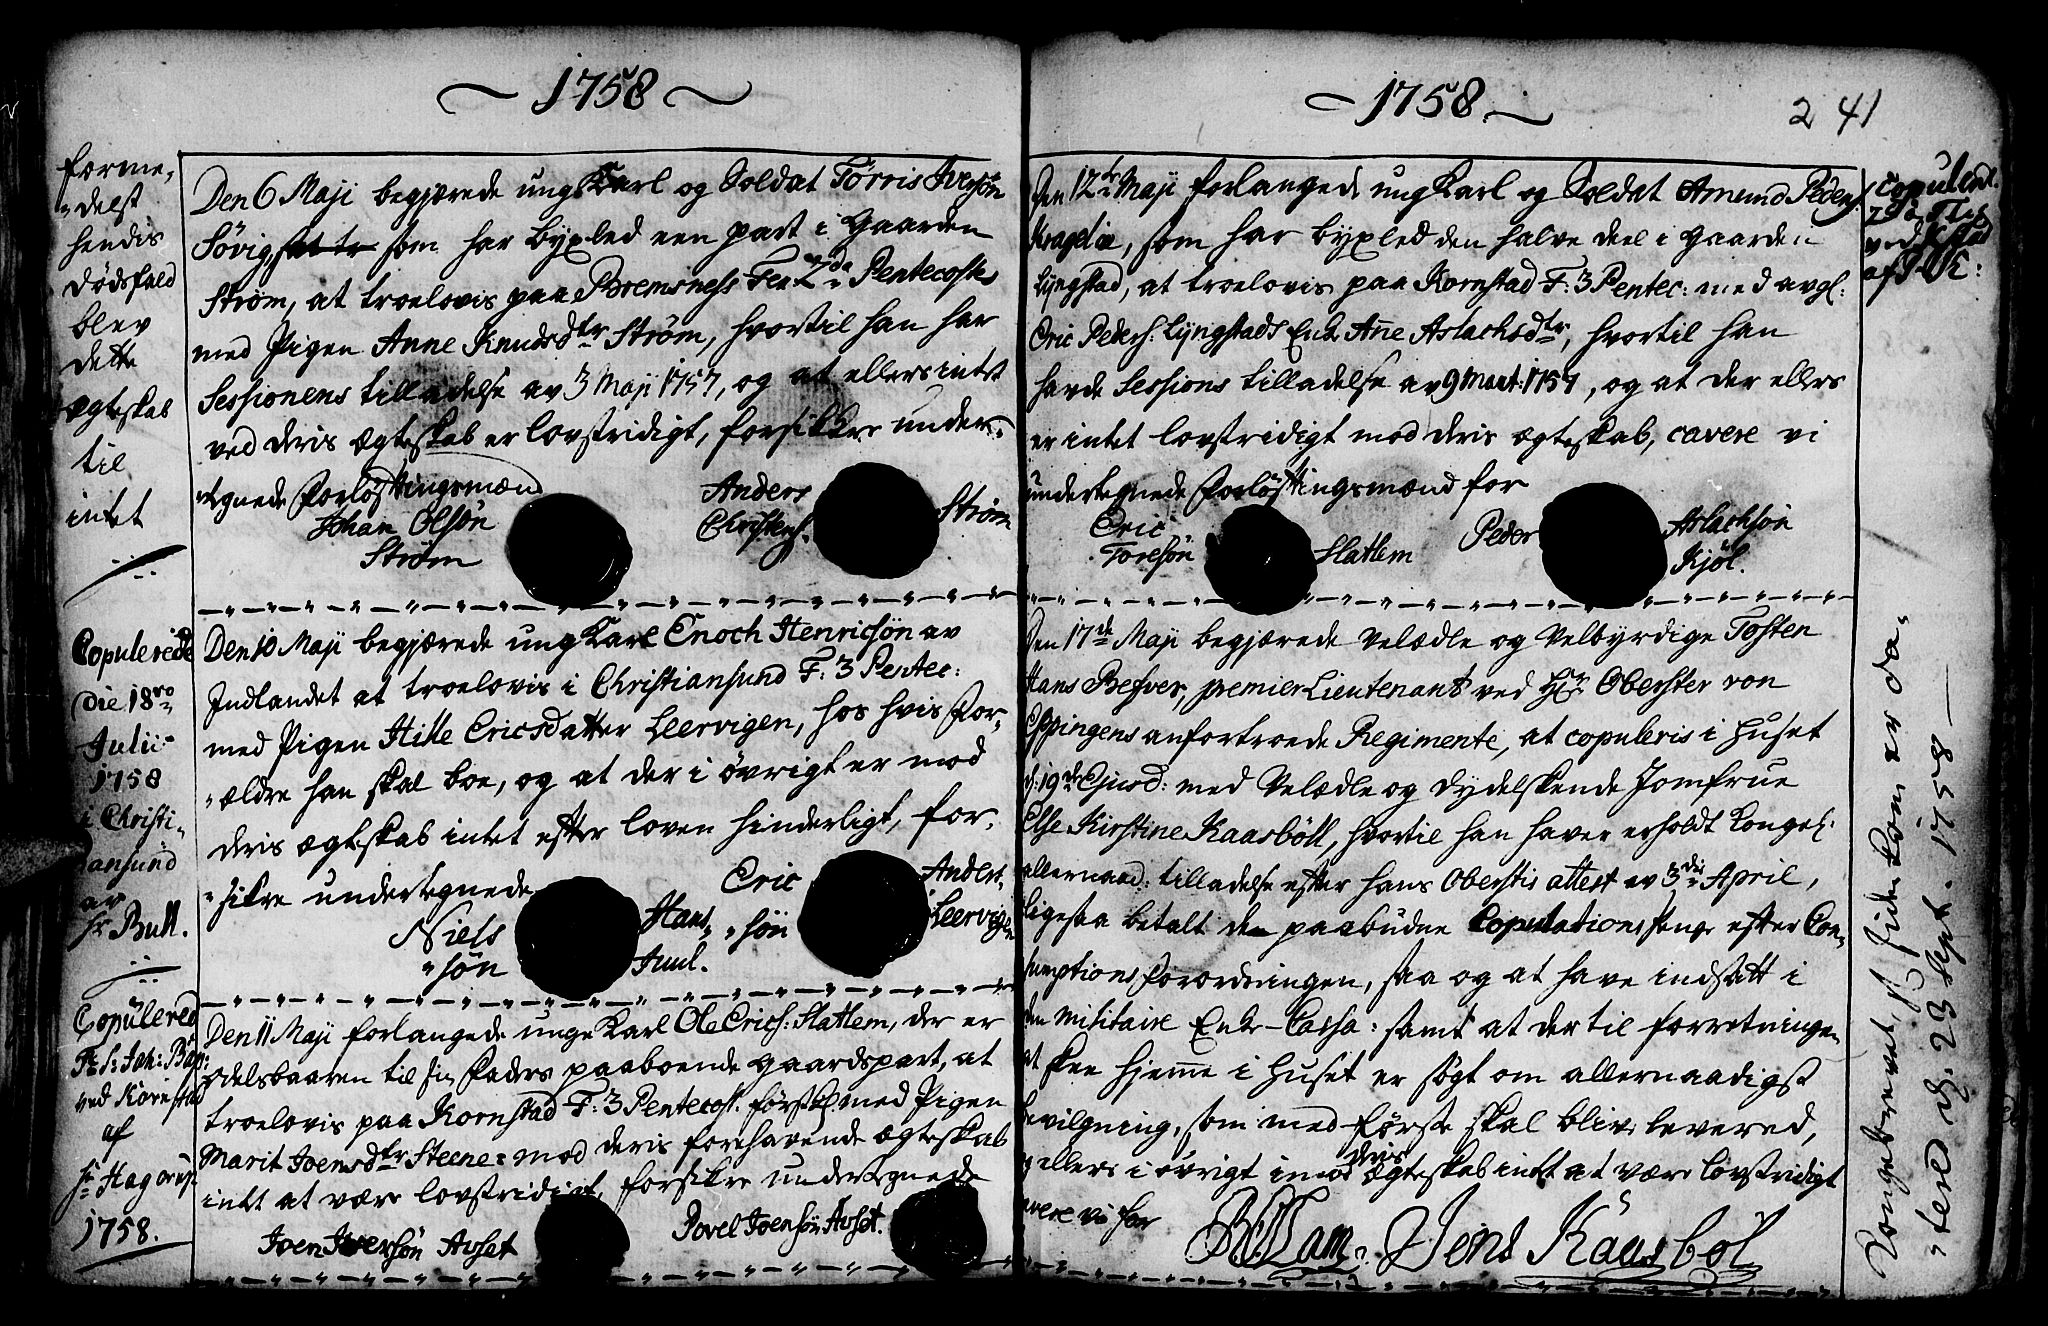 1758
forme„
„delst
hendis
dødsfald
blev
dette
ægteskab
til
intet
Den 6 Maji begjærede ung Karl og Soldat Tørris Iversøn
Søvig, som har byxled en part i gaarden
Strøm, at troelovis paa Bremsness Fer. 2da Pentecostes
med Pigen Anne Knudsdtr Strøm, hvortil han har
Sessionens tilladelse av 3 Maji 1757, og at ellers intet
ved deris ægteskab er lovstridigt, forsikkre under„
„tegnede Forløftningsmænd
Johan Olsøn
Strøm
Anders
Christens.
Strøm
Copulerede
die 18vo
Julii
1758
i Christi„
„ansund
av
hr Bull.
Den 10 Maji begjærede ung Karl Enoch Henricsøn av
Indlandet at troelovis i Christiansund F: 3 Pentec:
med Pigen Hille Ericsdatter Leervigen, hos hvis For„
„ældre han skal boe, og at der i øvrigt er mod
deris ægteskab intet efter loven hinderligt, for„
„sikre undertegnede
Niels
„søn
Hans„
Juul.
Eric
„søn
Anders„
Leervigen
Copulered
Fr. S: Joh: Bap:
ved Kornstad
af
hr Hagerup.
1758.
Den 11 Maji forlangede unge Karl Ole Erics: Slatlem, der er
odelsbaaren til sin Faders paaboende gaardspart, at
troelovis paa Kornstad F: 3 Pentecost.førstk. med Pigen
Marit Joensdtr Steene: mod deris forehavende ægteskab
intet at være lovstridigt, forsikre undertegnede
Joen Iversøn Avset
Povel Joensøn Avset.
1758
241
Den 12te Maji forlangede ung Karl og Soldat Amund Peders.
Kragelie, som har byxled den halve deel i gaarden
Lyngstad, at troelovis paa Kornstad F: 3 Pentec: med avgl:
Eric Peders. Lyngstads Enke Anne Aslachsdtr, hvortil han
havde Sessions tilladelse av 9 Mart: 1757, og at der ellers
er intet lovstridigt mod deris ægteskab, cavere vi
undertegnede Forløftningsmænd for
Eric
Toresøn
Slatlem
Peder
Aslachsøn
Kjøl.
Copulered.
Den 17de Maji begjærede Velædle og Velbyrdige Tosten
Hans Besver, premier Lieutenant ved Hr Oberster von
Eppingens anfortroede Regimente, at copuleris i huset
d: 19de Ejusd: med Velædle og Dydelskende Jomfrue
Else Kirstine Kaasbøll, hvortil han haver erholdt Kongel:
allernaad: tilladelse efter hans Oberstis attest av 3die April,
ligesaa betalt den paabudne Copulations penge efter Con„
sumptions Forordningen, saa og at have indsatt i
den Militaire Enke-Cassa: samt at der til forretningen
at skee hjemme i huset er søgt om allernaadigst
bevilgning, som med første skal bliv levered,
og ellers i øvrigt imod deris ægteskab intet at være lovstridigt
cavere vi for
Jens Kaasbøl
Kongebrevet,
„tered d. 23 Sept. 1758